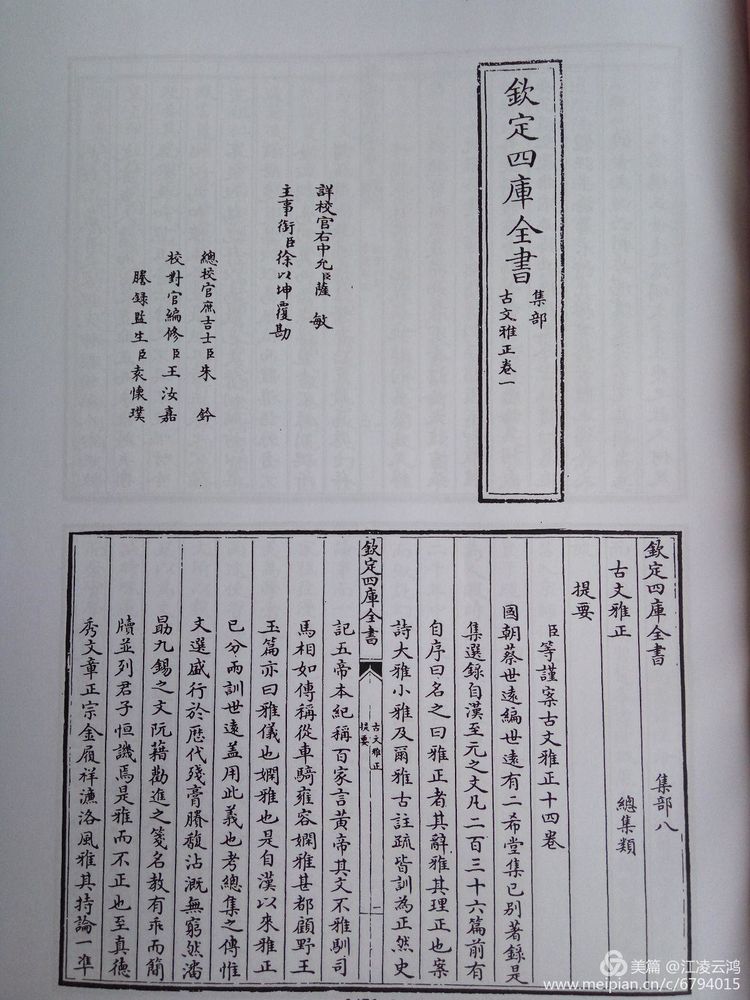 欽定四庫全書
集部
古文雅正卷一
詳校官右中允臣薩敏
主事銜臣徐以坤覆勘
總校官庶吉士臣朱鈐
校對官編修臣王汝嘉
謄錄監生臣袁懷璞
欽定四庫全書 集部八
古文雅正 總集類
提要
臣等謹案古文雅正十四卷
國朝蔡世遠編世遠有二希堂集已別著錄是
集選錄自漢至元之文凡二百三十六篇前有
自序曰名之曰雅正者其辭雅其理正也案
詩大雅小雅及爾雅古註疏皆訓為正然史
欽定四庫全書
古文雅正
提要
一
記五帝本紀稱百家言黃帝其文不雅馴司
馬相如傳稱從車騎雍容嫻雅甚都顧野王
玉篇亦曰雅儀也嫻雅也是自漢以來雅正
已分兩訓世遠蓋用此義也考總集之傳惟
文選盛行於歷代殘膏賸馥沾溉無窮然潘
勗九錫之文阮籍勸進之箋名教有乖而簡
牘並列君子恒譏焉是雅而不正也至真德
秀文章正宗金履祥濂洛風雅其持論一準
美篇 @江凌云鸿
www.meipian.cn/c/6794015